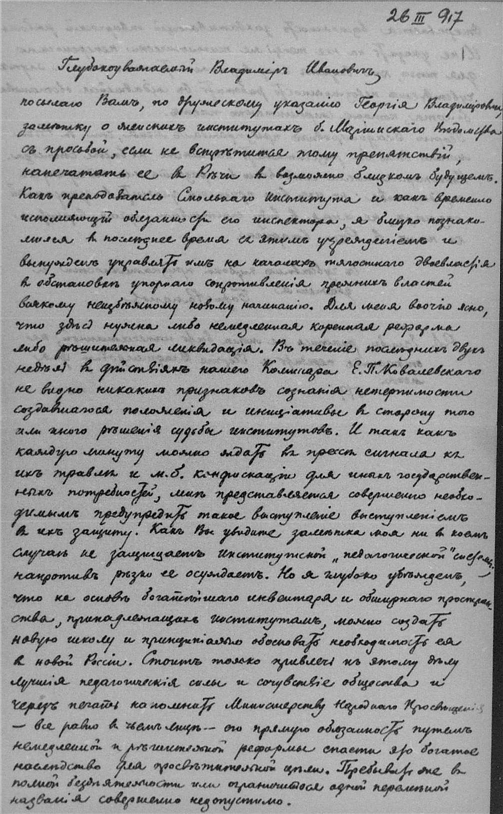 26 III 917
Глубокоуважаемый Владиміръ Ивановичъ,
посылаю Вамъ, по дружескому указанію Георгія Владиміровича,
замѣтку о женскихъ институтахъ б. Маріинскаго Вѣдомства
съ просьбой, если не встрѣтится тому препятствій,
напечатать ее въ Рѣчи въ возможно близкомъ будущемъ.
Какъ преподаватель Смольнаго института и какъ временно
исполняющій обязанности его инспектора, я близко познако-
мился въ послѣднее время съ этимъ учрежденіемъ и
вынужденъ управлять имъ на началахъ тягостнаго двоевластія
въ обстановкѣ упорнаго сопротивленія прежнихъ властей
всякому неизбѣжному новому начинанію. Для меня воочію ясно,
что здѣсь нужна либо немедленная коренная реформа
либо рѣшительная ликвидація. Въ теченіе послѣднихъ двухъ
недѣль въ дѣйствіяхъ нашего Комиссара Е.П. Ковалевскаго
не видно никакихъ признаковъ сознанія нетерпимости
создавшагося положенія и иниціативы въ сторону того
или иного рѣшенія судьбы институтовъ. И такъ какъ
каждую минуту можно ждать въ прессѣ сигнала къ
ихъ травлѣ и м.б. конфискаціи для иныхъ государствен-
ныхъ потребностей, мнѣ представляется совершенно необхо-
димымъ предупредить такое выступленіе выступленіемъ
въ ихъ защиту. Какъ Вы увидите замѣтка моя ни въ коемъ
случаѣ не защищаетъ институтской „педагогической" системы,
напротивъ рѣзко ее осуждаетъ. Но я глубоко убѣжденъ,
что на основѣ богатѣйшаго инвентаря и обширнаго простран-
ства, принадлежащихъ институтамъ, можно создать
новую школу и принципіально обосновать необходимость ея
въ новой Россіи. Стоитъ только привлечь къ этому дѣлу
лучшія педагогическія силы и сочувствіе общества и
черезъ печать напомнать Министерству Народнаго Просвѣщенія
— все равно въ чьемъ лицѣ — его прямую обязанность путемъ
немедленной и рѣшительной реформы спасти это богатое
наслѣдство для просвѣтительной цѣли. Пребывать же въ
полной бездѣятельности или ограничиться одной перемѣной
названія совершенно недопустимо.